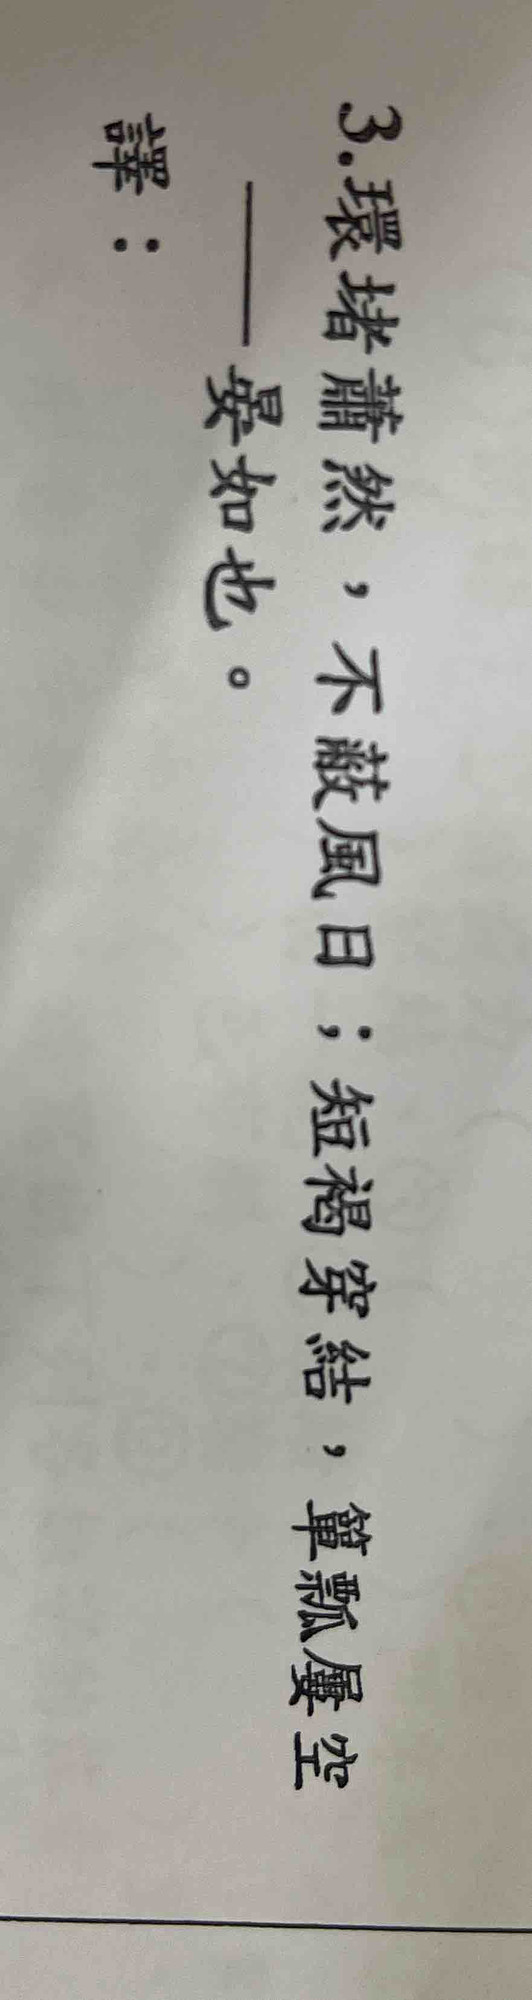 3.環堵蕭然，不蔽風日；短褐穿結，簞瓢屢空
——晏如也。
譯：